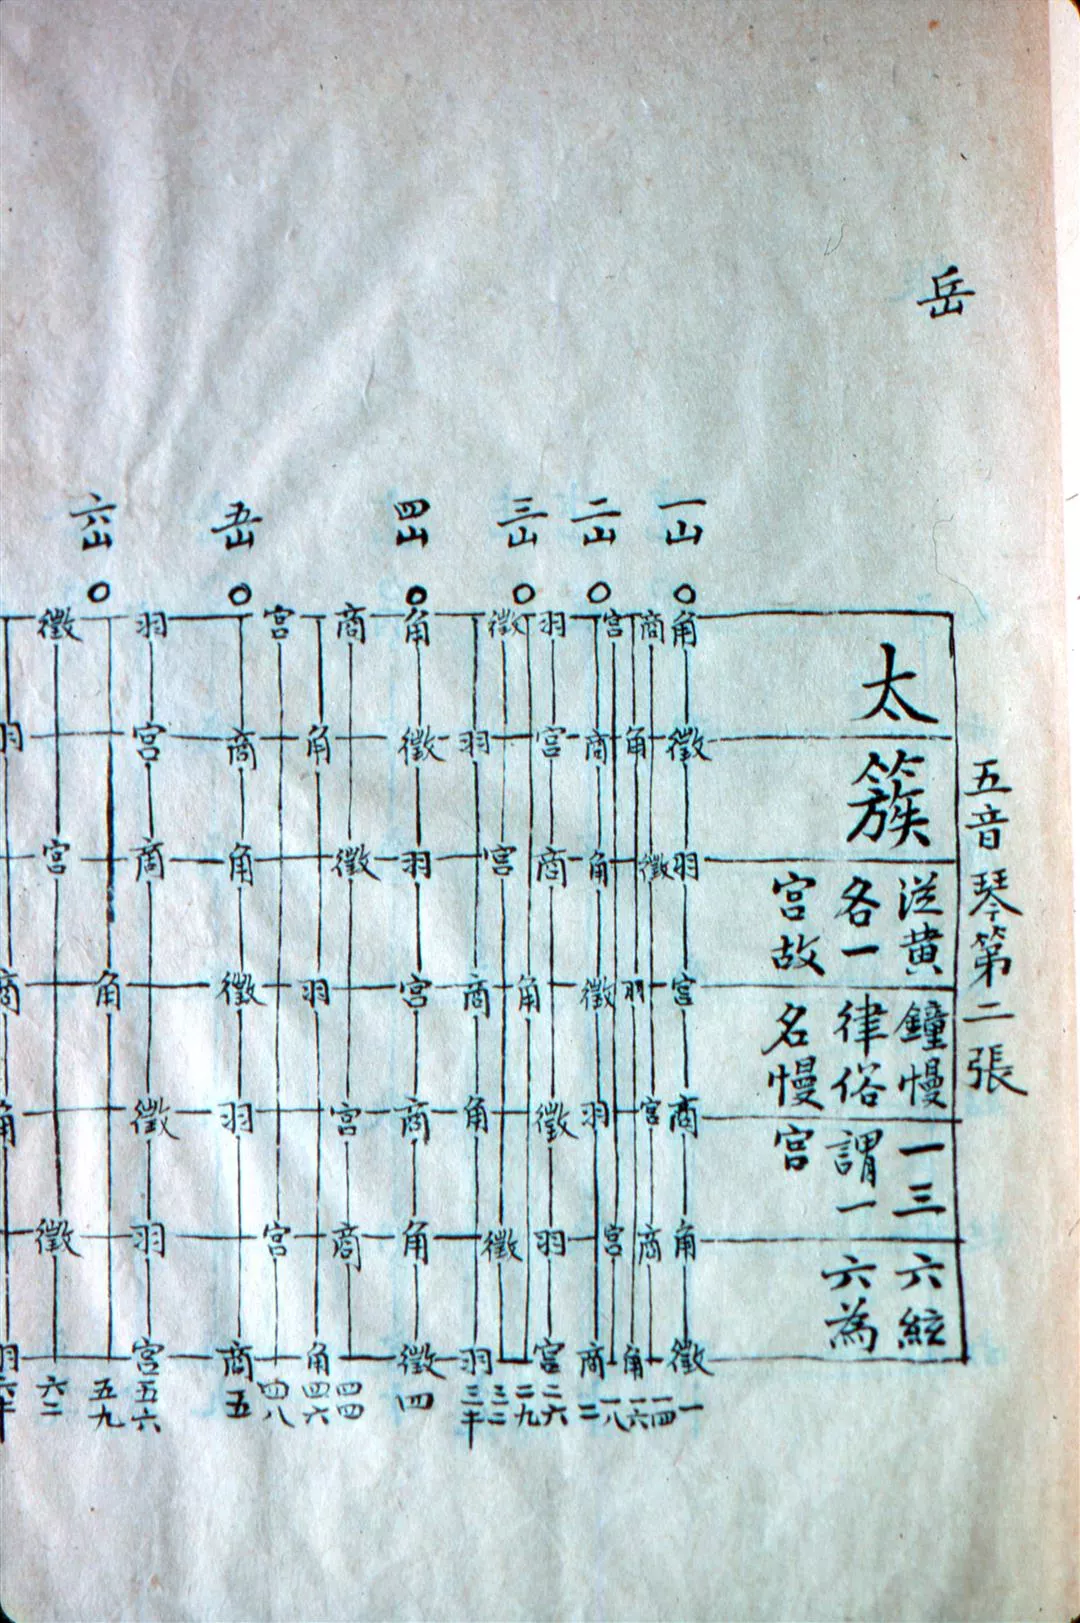 岳
五音琴第二張
太簇
從黄鐘慢一三六絃
各一律俗謂一六為
宫故名慢宫
一山 二山 三山 四山 五山 六山
角 商 宫 羽 徵 角 商 宫 羽 徵
徵 角 商 宫 羽 徵 角 商 宫 羽
羽 徵 角 商 宫 羽 徵 角 商 宫
宫 羽 徵 角 商 宫 羽 徵 角 商
商 宫 羽 徵 角 商 宫 羽 徵 角
角 商 宫 羽 徵 角 商 宫 羽 徵
徵 角 商 宫 羽 徵 角 商 宫 羽
一 一四 一六 一八 二 二六 二九 三二 三半 四 四四 四六 四八 五 五六 五九 六二 六半